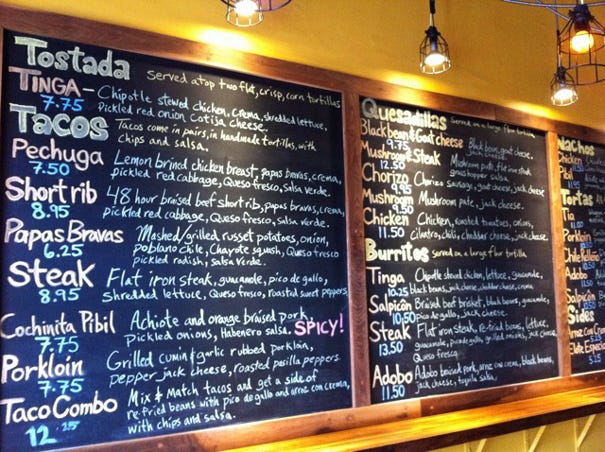 Tostada served atop two flat, crisp, corn tortillas
TINGA - Chipotle stewed chicken, Crema, shredded lettuce,
7.75 Pickled red onion Cotija cheese.
Tacos Tacos come in pairs, in handmade tortillas, with
chips and salsa.
Pechuga Lemon brined chicken breast, papas bravas, crema,
7.50 pickled red cabbage, Queso fresco, salsa verde.
Short rib 48 hour braised beef short rib, papas bravas, crema,
8.95 pickled red cabbage, Queso fresco, salsa verde.
Papas Bravas Mashed/grilled russet potatoes, onion,
6.25 poblano chile, Chayote squash, Queso fresco
pickled radish, salsa verde.
Steak Flat iron steak, guacamole, pico de gallo,
8.95 shredded lettuce, Queso fresco, roasted sweet peppers
Cochinita Pibil Achiote and orange braised pork,
7.75 Pickled onions, Habenero salsa. SPICY!
Porkloin Grilled cumin & garlic rubbed porkloin,
7.75 pepper jack cheese, roasted pasilla peppers
Taco Combo Mix & Match tacos and get a side of
12.25 re-fried beans with pico de gallo and arroz con crema,
with chips and salsa.
Quesadillas served on a large flour tortilla
Black bean & Goat cheese Black bean, goat cheese,
9.75
Mushroom & Steak
12.50
Chorizo Chorizo sausage, goat cheese, jack cheese
9.95
Mushroom Mushroom pate, jack cheese.
9.50
Chicken Chicken, roasted tomatoes, onions,
11.50 cilantro, chili, cheddar cheese, jack cheese.
Burritos served on a large flour tortilla
Tinga Chipotle stewed chicken, lettuce, guacamole,
10.25 black beans, jack cheese, cheddar cheese, crema
Salpicón Braised beef brisket, black beans, guacamole,
10.50 pico de gallo, jack cheese.
Steak Flat iron steak, re-fried beans, lettuce,
13.50 guacamole, pico de gallo, grilled onions, jack cheese
Queso fresco
Adobo Adobo braised pork, arroz con crema, black beans,
11.50 jack cheese, tequila salsa.
Nachos
Chicken
Pibil
Tortas
Tia
11.00
Porkloin
Chile Relleno
Adobo
Salpicón
Sides
Arroz Con Crema
Elote Especial